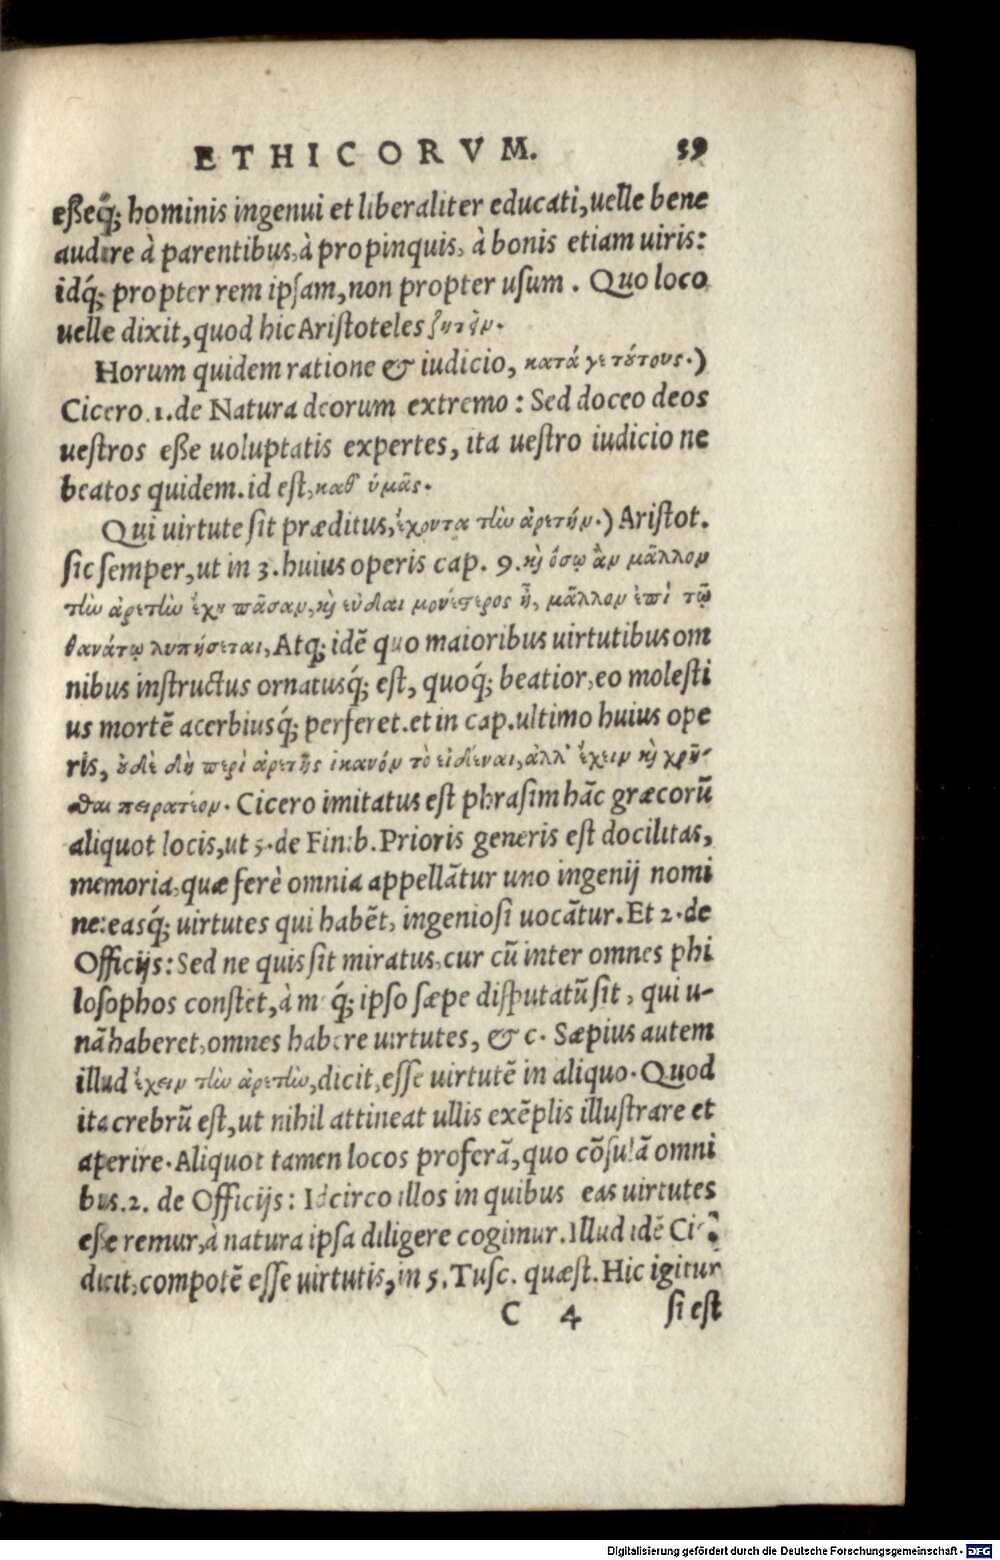 ETHICORVM. 59
eßeq́; hominis ingenui et liberaliter educati, uelle bene
audire à parentibus, à propinquis, à bonis etiam uiris:
idq́; propter rem ipſam, non propter uſum. Quo loco
uelle dixit, quod hic Ariſtoteles ζητεῖν.
Horum quidem ratione & iudicio, κατά γε τούτους.)
Cicero.1.de Natura deorum extremo: Sed doceo deos
ueſtros eße uoluptatis expertes, ita ueſtro iudicio ne
beatos quidem. id eſt, καθ' ὑμᾶς.
Qui uirtute ſit præditus, ἔχοντα τὴν ἀρετήν.) Ariſtot.
ſic ſemper, ut in 3. huius operis cap. 9. καὶ ὅσῳ ἂν μᾶλλον
τὴν ἀρετὴν ἔχῃ πᾶσαν, καὶ εὐδαιμονέστερος ᾖ, μᾶλλον ἐπὶ τῷ
θανάτῳ λυπήσεται, Atq; idẽ quo maioribus uirtutibus om
nibus inſtructus ornatusq́; eſt, quoq́; beatior, eo moleſti
us mortẽ acerbiusq́; perferet. et in cap. ultimo huius ope
ris, οὐδὲ δὴ περὶ ἀρετῆς ἱκανὸν τὸ εἰδέναι, ἀλλ' ἔχειν καὶ χρῆ-
σθαι πειρατέον. Cicero imitatus eſt phraſim hãc græcorũ
aliquot locis, ut 5. de Finib. Prioris generis eſt docilitas,
memoria, quæ ferè omnia appellãtur uno ingenij nomi
ne: easq́; uirtutes qui habẽt, ingenioſi uocãtur. Et 2. de
Officijs: Sed ne quis ſit miratus, cur cũ inter omnes phi
loſophos conſtet, à m q́; ipſo ſæpe diſputatũ ſit, qui u-
nã haberet, omnes habere uirtutes, & c. Sæpius autem
illud ἔχειν τὴν ἀρετὴν, dicit, eſſe uirtutẽ in aliquo. Quod
ita crebrũ eſt, ut nihil attineat ullis exẽplis illuſtrare et
aperire. Aliquot tamen locos proferã, quo cõſulã omni
bus. 2. de Officijs: Idcirco illos in quibus eas uirtutes
eße remur, à natura ipſa diligere cogimur. Illud idẽ
dicit, compotẽ eſſe uirtutis, in 5. Tuſc. quæſt. Hic igitur
C 4 ſi eſt
Digitalisierung gefördert durch die Deutsche Forschungsgemeinschaft - DFG